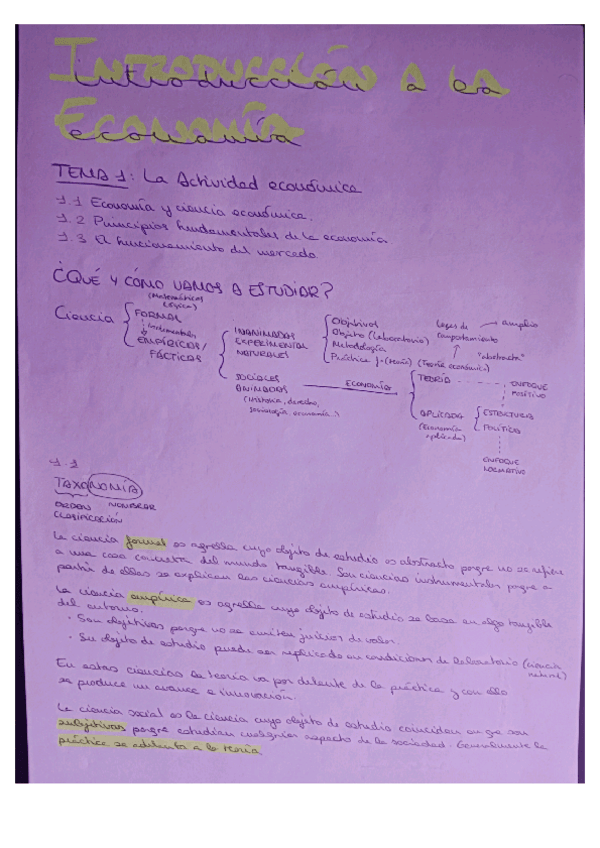 INTRODUCCIÓN A LA
introducción a la
ECONOMÍA
economía
TEMA 1: La Actividad económica
1.1 Economía y ciencia económica.
1.2 Principios fundamentales de la economía
1.3 El funcionamiento del mercado
¿QUÉ Y CÓMO VAMOS A ESTUDIAR?
Ciencia
FORMAL
(Matemáticas
Lógica)
instrumentales
EMPÍRICOS/
FÁCTICAS
INANIMADAS
EXPERIMENTAL
NATURALES
Objetivos
Objeto (Laboratorio)
Metodología
Práctica (Teoría)
SOCIALES
ANIMADAS
(historia, derecho,
sociología, economía)
ECONOMÍA
Leyes de
comportamiento
amplio
"abstracta"
(Teoría económica)
TEORÍA
ENFOQUE
POSITIVO
APLICADA
(Economía
aplicada)
ESTRUCTURA
POLÍTICA
ENFOQUE
NORMATIVO
1.1
TAXONOMÍA
ORDEN NOMBRAR
CLASIFICACIÓN
La ciencia formal es aquella cuyo objeto de estudio es abstracto porque no se refiere
a una cosa concreta del mundo tangible. Son ciencias instrumentales porque a
partir de ellas se explican las ciencias empíricas.
La ciencia empírica es aquella cuyo objeto de estudio se basa en algo tangible
del entorno.
· Son objetivas porque no se emiten juicios de valor.
· Su objeto de estudio puede ser replicado en condiciones de laboratorio (ciencia
natural)
En estas ciencias la teoría va por delante de la práctica y con ello
se produce un avance e innovación.
La ciencia social es la ciencia cuyo objeto de estudio coinciden en que son
subjetivas porque estudian cualquier aspecto de la sociedad. Generalmente la
práctica se adelanta a la teoría.